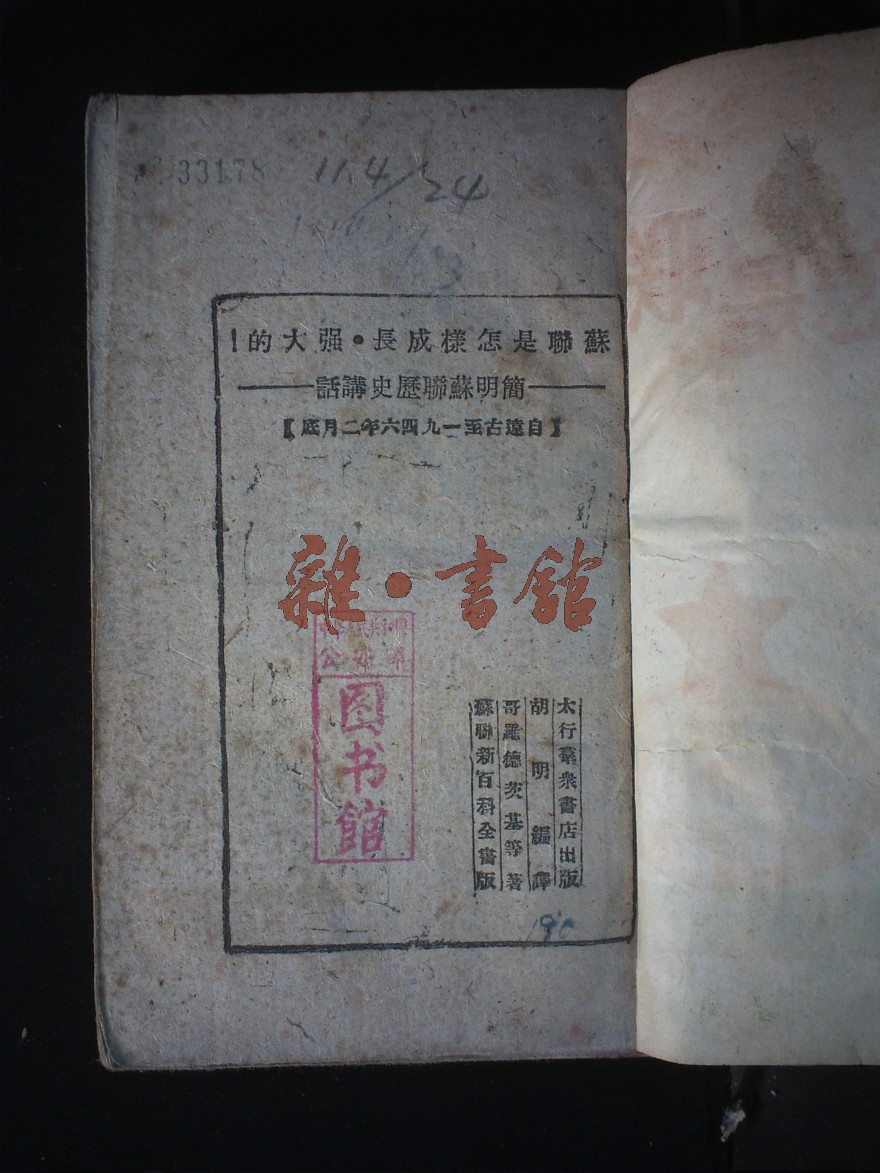 33178 11.4/24
蘇聯是怎樣成長•强大的！
——簡明蘇聯歷史講話——
【自遠古至一九四六年二月底】
雜•書館
太行羣衆書店出版
胡明編譯
哥羅德茨基等著
蘇聯新百科全書版
图书馆
190